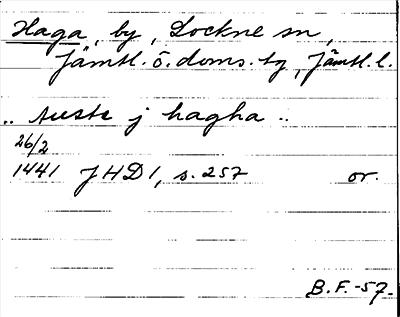 Haga, by, Lockne sn,
Jämtl. ö. doms. tg, Jämtl. l.
.. Auste j hagha ..
26/2
1441 JHD 1, s. 257 or.
B.F.-57.